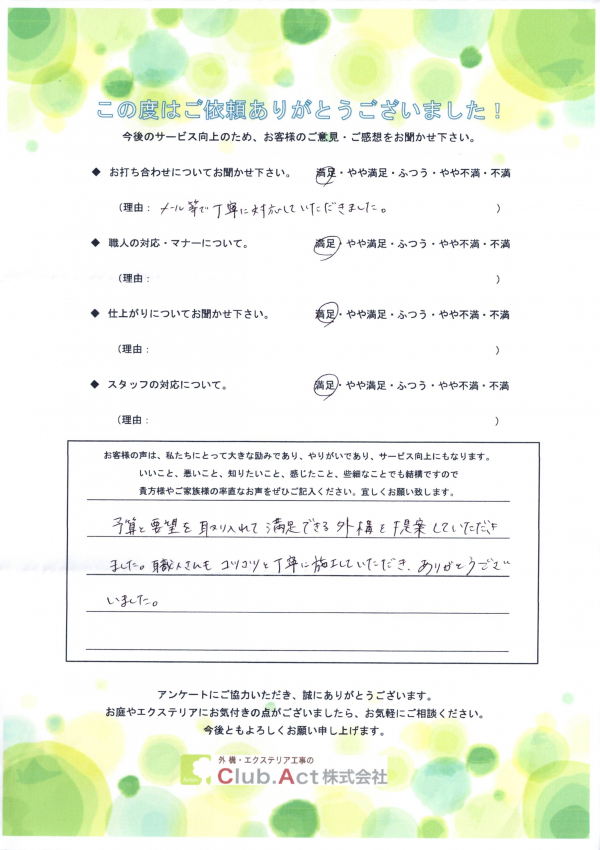 この度はご依頼ありがとうございました！
今後のサービス向上のため、お客様のご意見・ご感想をお聞かせ下さい。
◆ お打ち合わせについてお聞かせ下さい。 満足・やや満足・ふつう・やや不満・不満
（理由： メール等で丁寧に対応していただきました。 ）
◆ 職人の対応・マナーについて。 満足・やや満足・ふつう・やや不満・不満
（理由： ）
◆ 仕上がりについてお聞かせ下さい。 満足・やや満足・ふつう・やや不満・不満
（理由： ）
◆ スタッフの対応について。 満足・やや満足・ふつう・やや不満・不満
（理由： ）
お客様の声は、私たちにとって大きな励みであり、やりがいであり、サービス向上にもなります。
いいこと、悪いこと、知りたいこと、感じたこと、些細なことでも結構ですので
貴方様やご家族様の率直なお声をぜひご記入ください。宜しくお願い致します。
予算と要望を取り入れて満足できる外構を提案していただき
ました。職人さんも コツコツと丁寧に施工していただき、ありがとうござ
いました。
アンケートにご協力いただき、誠にありがとうございます。
お庭やエクステリアにお気付きの点がございましたら、お気軽にご相談ください。
今後ともよろしくお願い申し上げます。
外構・エクステリア工事の
Club.Act株式会社